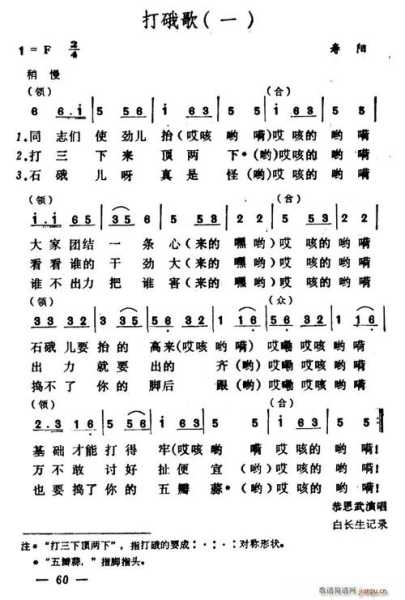 打硪歌(一)
1=F 2/4 寿阳
稍慢
(领) (合)
6 6·1 | 5 5 6 | 5 5 | 1 6 3 | 5 5 |
1.同志们 使劲儿 抬(哎咳 哟 嗬)哎咳的 哟嗬
2.打三 下来 顶两 下*(哟)哎咳的 哟嗬
3.石硪 儿呀 真是 怪(哟)哎咳的 哟嗬
(领) (合)
大家 团结 一 条 心(来的 嘿哟)哎 咳的 哟 嗬
看看 谁的 干 劲 大(来的 嘿哟)哎 咳的 哟 嗬
谁不 出力 把 谁 害(来的 嘿哟)哎 咳的 哟 嗬
(领) (众)
石硪 儿要 抬的 高来(哎咳 哟嗬) 哎嘞 哎咳哟嗬
出力 就要 出的 齐(哟) 哎嘞 哎咳哟嗬
捣不了 你的 脚后 跟(哟) 哎嘞 哎咳哟嗬
(领) (合)
基础 才能 打得 牢(哎咳 哟 嗬) 哎咳的 哟 嗬!
万不 敢 讨好 扯便 宜 (哟) 哎咳的 哟 嗬!
也要 捣了 你的 五瓣 蒜*(哟) 哎咳的 哟 嗬!
恭恩武演唱
白长生记录
注*“打三下顶两下”,指打硪的要成:·:·:对称形状。
*“五瓣蒜,”指脚指头。
— 60 —
歌谱简谱网 jianpu.cn